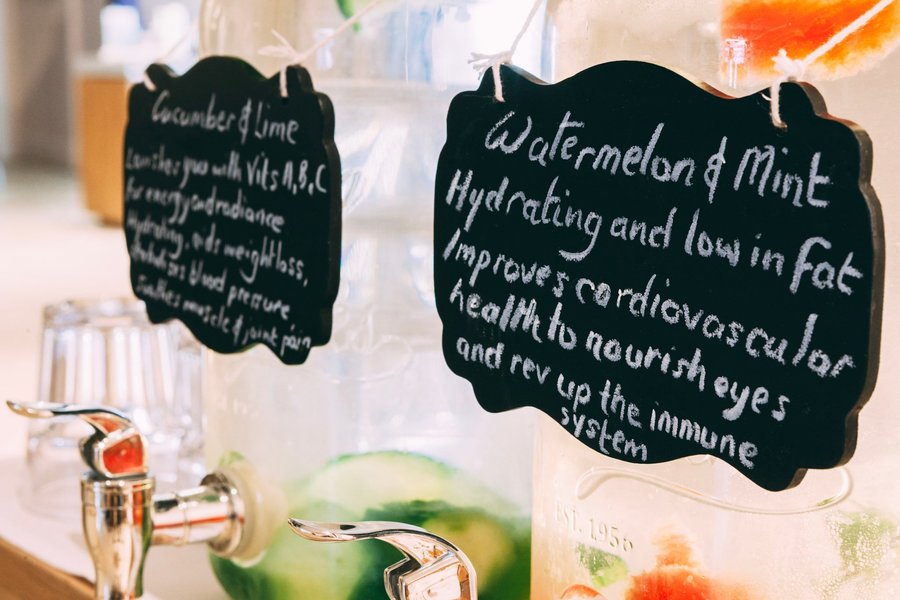 Cucumber & Lime
you with Vits A,B,C
for energy and radiance
Hydrating, aids weightloss,
blood pressure
Soothes muscle & joint pain
Watermelon & Mint
Hydrating and low in fat
Improves cardiovascular
health to nourish eyes
and rev up the immune
system
EST. 1956